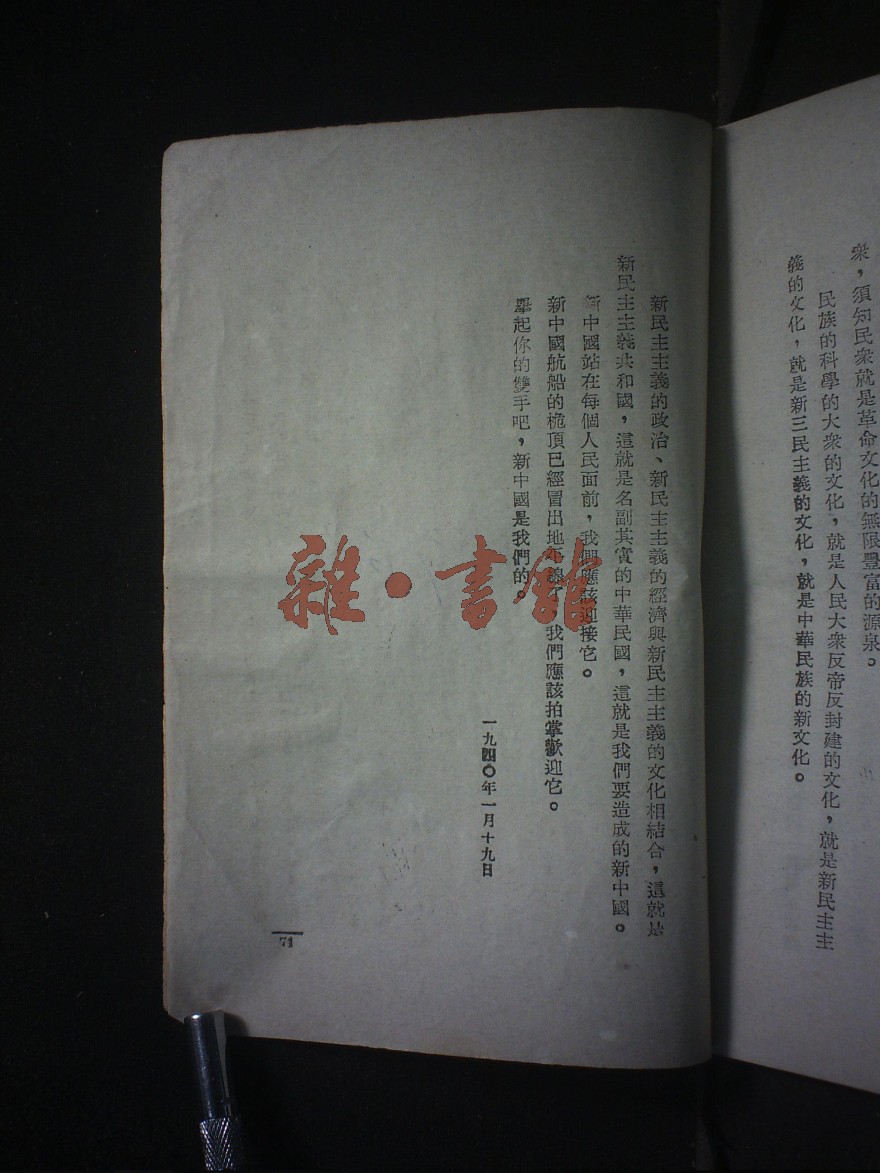 衆，須知民衆就是革命文化的無限豐富的源泉。
民族的科學的大衆的文化，就是人民大衆反帝反封建的文化，就是新民主主
義的文化，就是新三民主義的文化，就是中華民族的新文化。
新民主主義的政治、新民主主義的經濟與新民主主義的文化相結合，這就是
新民主主義共和國，這就是名副其實的中華民國，這就是我們要造成的新中國。
新中國站在每個人民面前，我們應該迎接它。
新中國航船的桅頂已經冒出地平線了，我們應該拍掌歡迎它。
舉起你的雙手吧，新中國是我們的。
一九四〇年一月十九日
71
雜·書館